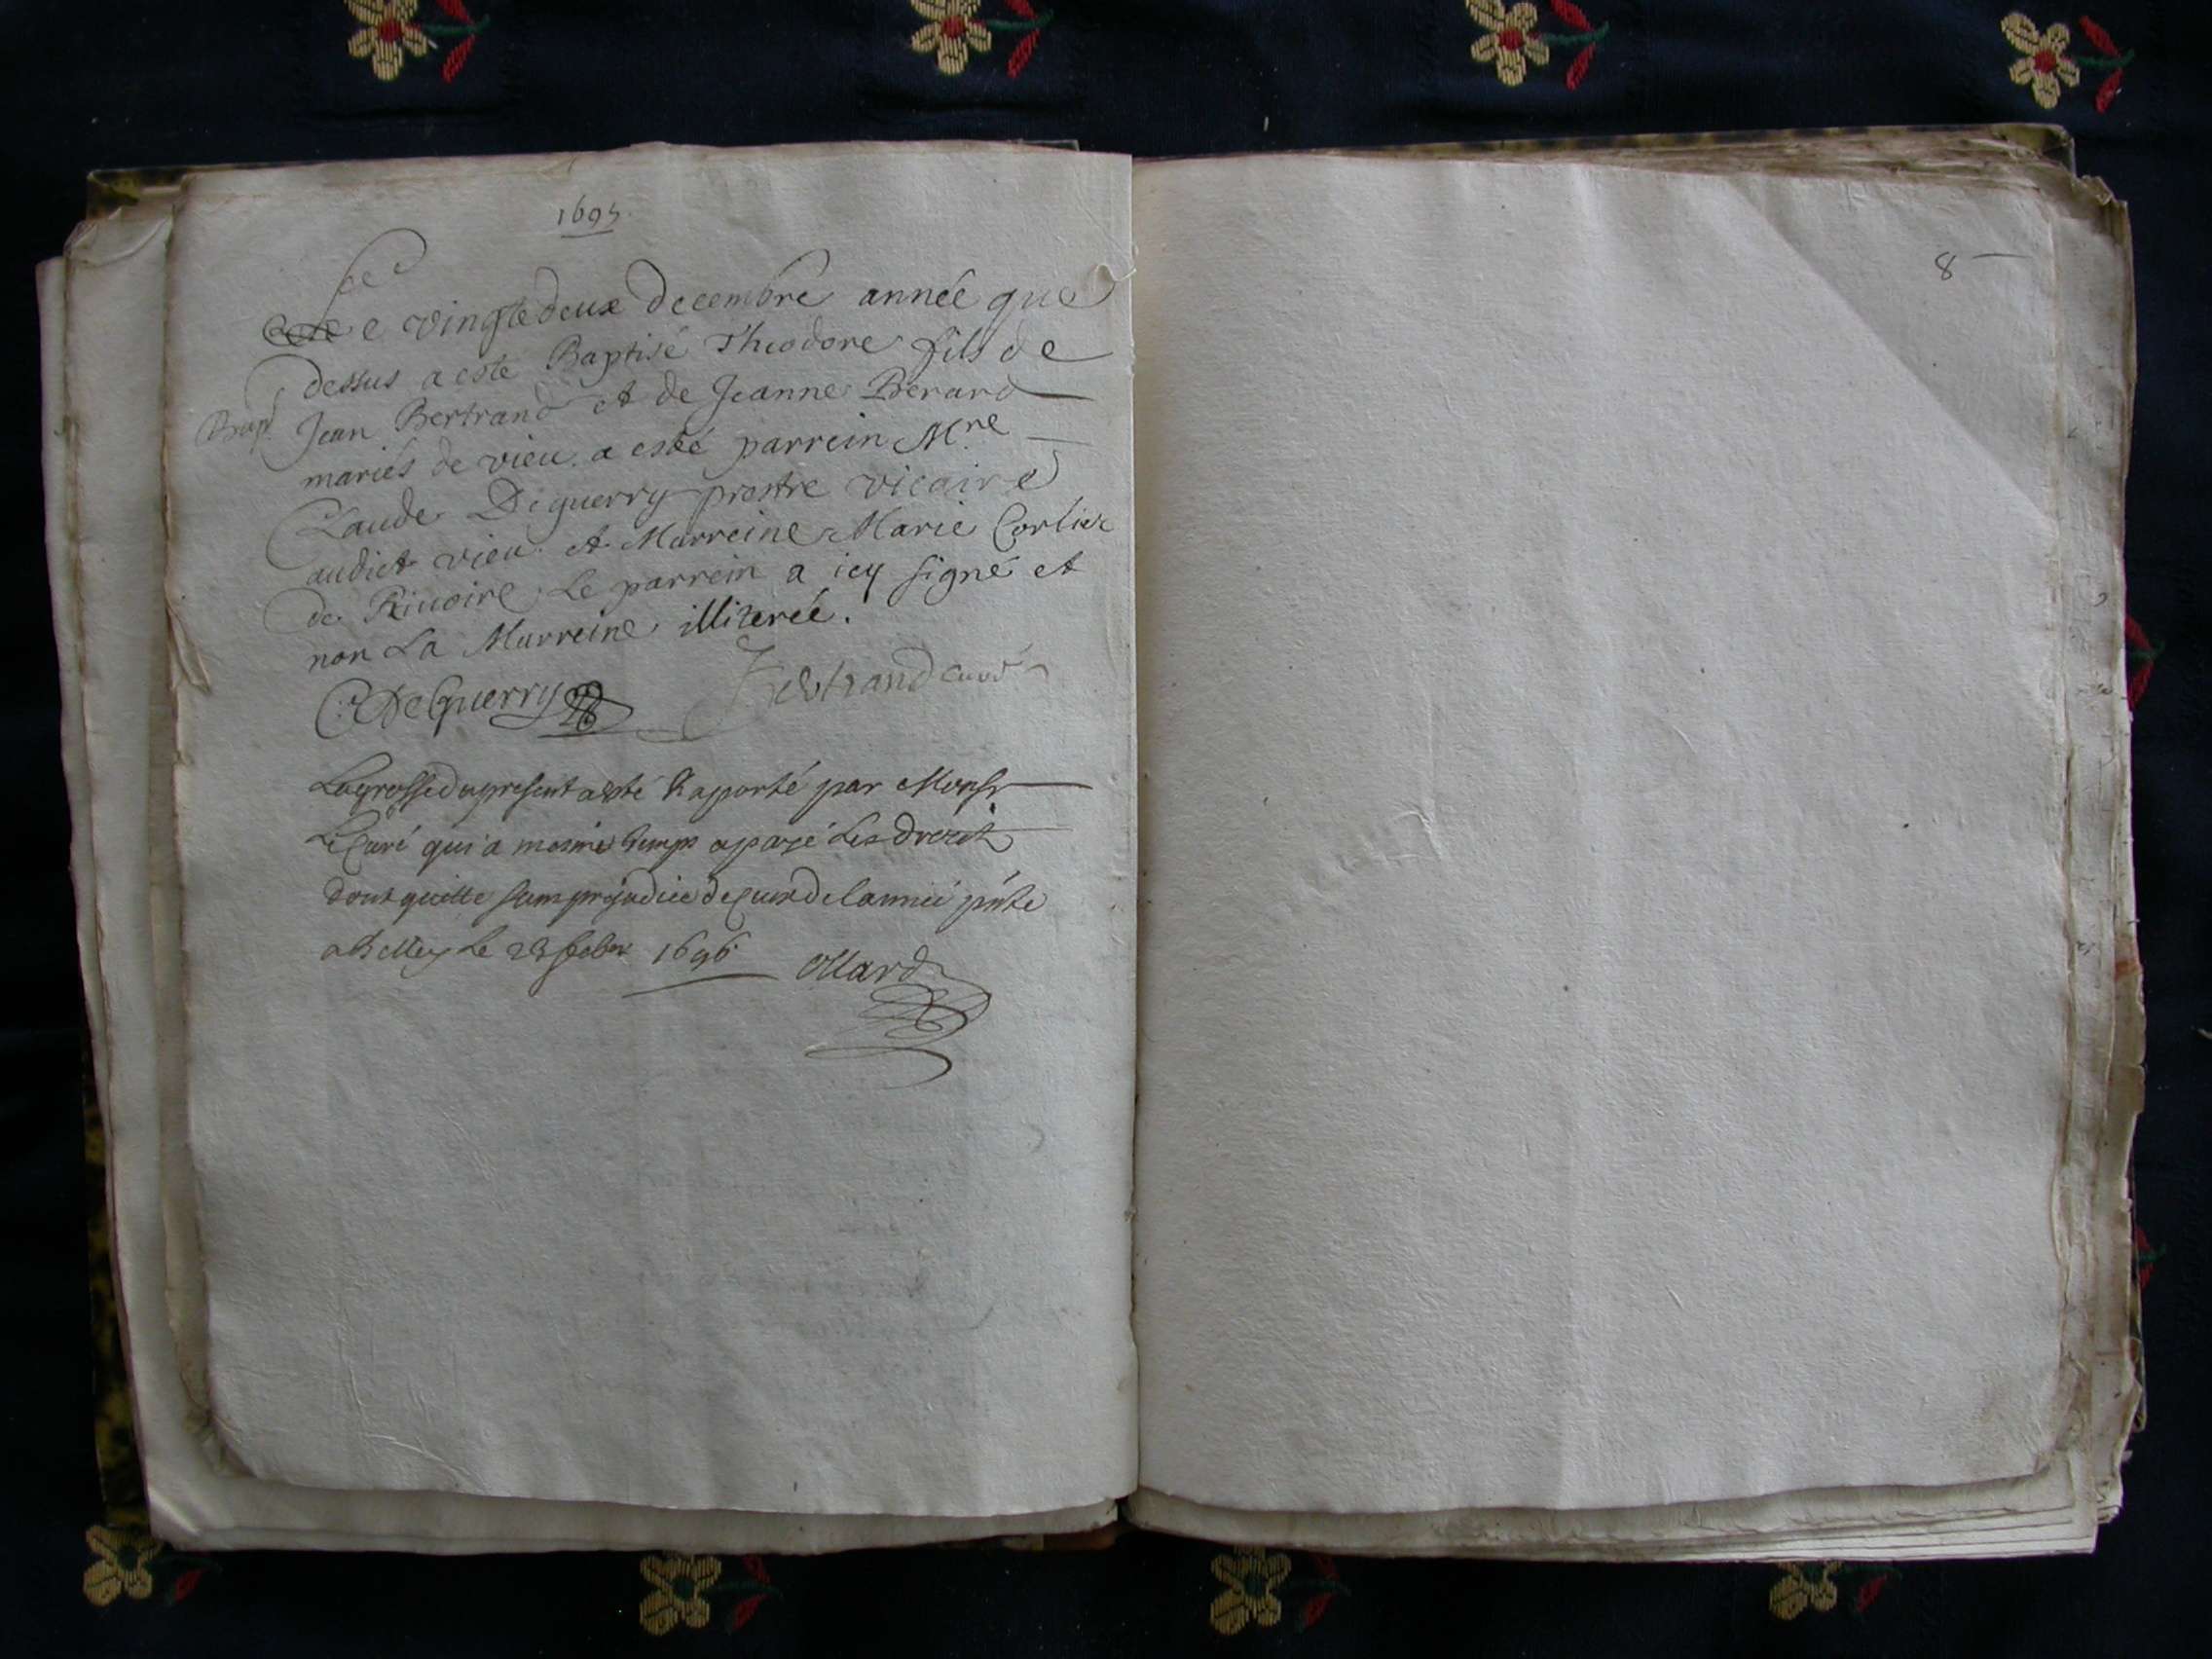 1695
Le vingtedeux decembre année que
dessus a esté Baptisé Theodore fils de
Bap.
Jean Bertrand et de Jeanne Berard
mariés de vieu. a esté parrein Mre
Claude Deguerry prestre vicaire
audict vieu. et Marreine Marie Corlier
de Rivoire. Le parrein a icy signé et
non La Marreine illiterée.
C. DeGuerry Bertrand curé
La grosse du present a esté Raporté par Monsr
Le Curé qui a mesme temps a payé Les droicts
dont quitte sans prejudice de ceux de lannée pnte
a Belley Le 28 1696 Ollard
8